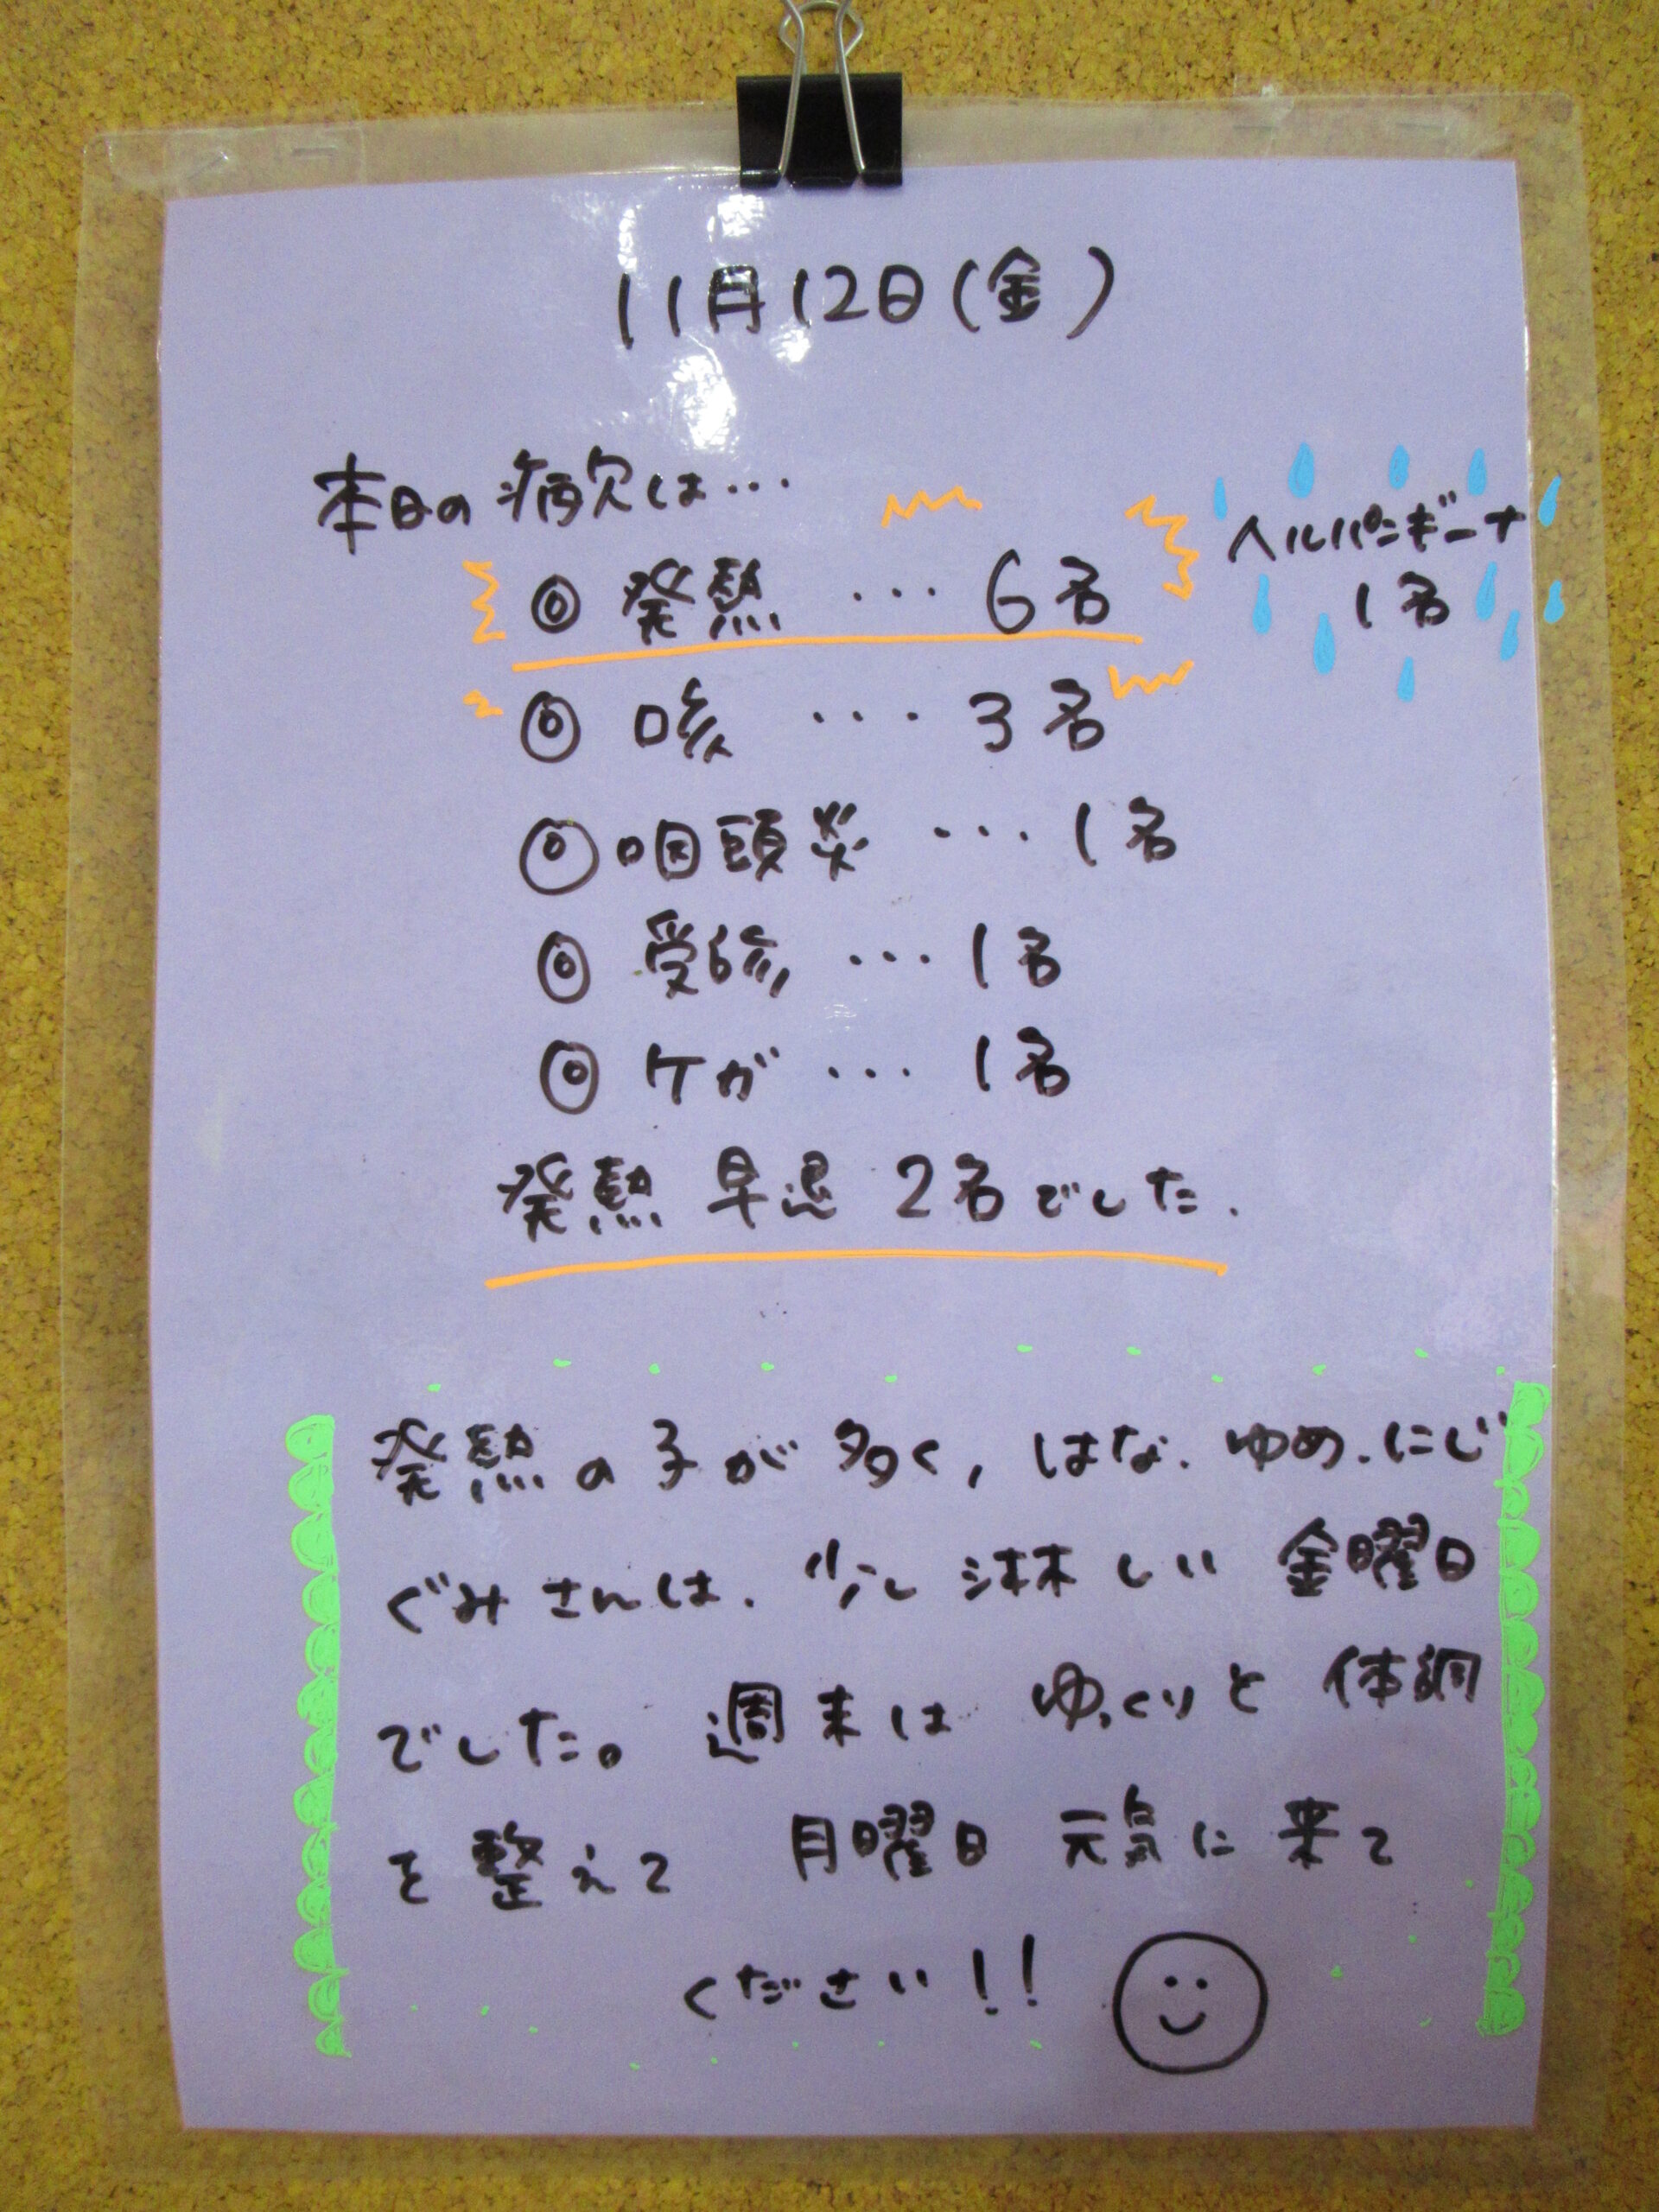 11月12日(金)
本日の病欠は…
ヘルパンギーナ
1名
◎ 発熱 … 6名
◎ 咳 … 3名
◎ 咽頭炎 … 1名
◎ 受診 … 1名
◎ ケガ … 1名
発熱 早退 2名でした.
発熱の子が多く, はな. ゆめ. にじ
ぐみさんは. 少し淋しい金曜日
でした。週末はゆっくりと体調
を整えて 月曜日元気に来て
ください!!